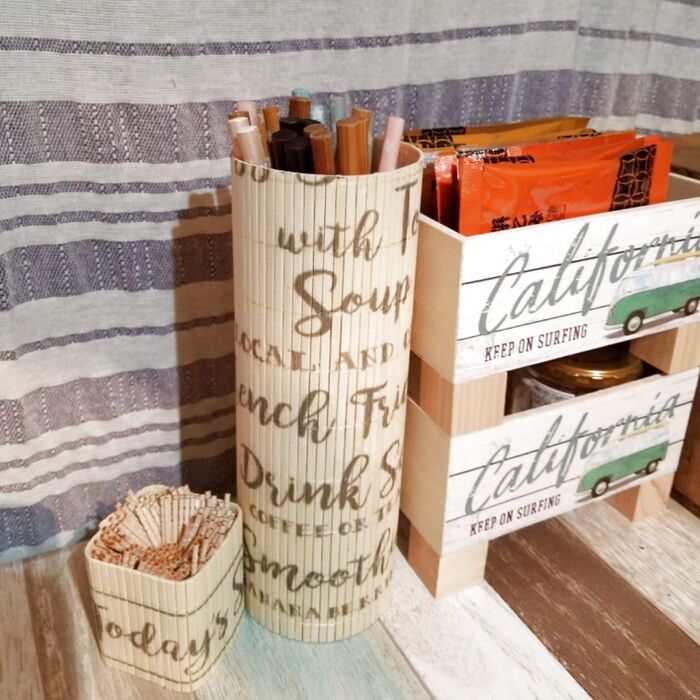 with To
Soup
OCAL AND C
ench Fri
Drink S
COFFEE OR T
Smooth
BANANABERR
Today's S
California
KEEP ON SURFING
California
KEEP ON SURFING